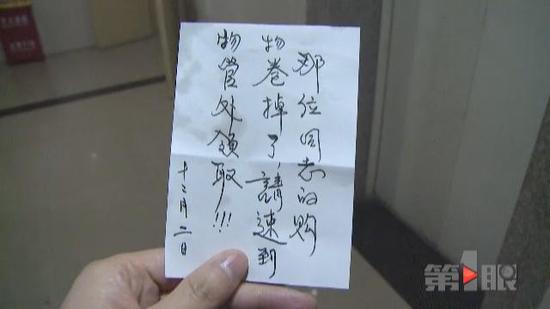 那位同志的购
物卷掉了,請速到
物管处领取!!!
十二月二日
第1眼